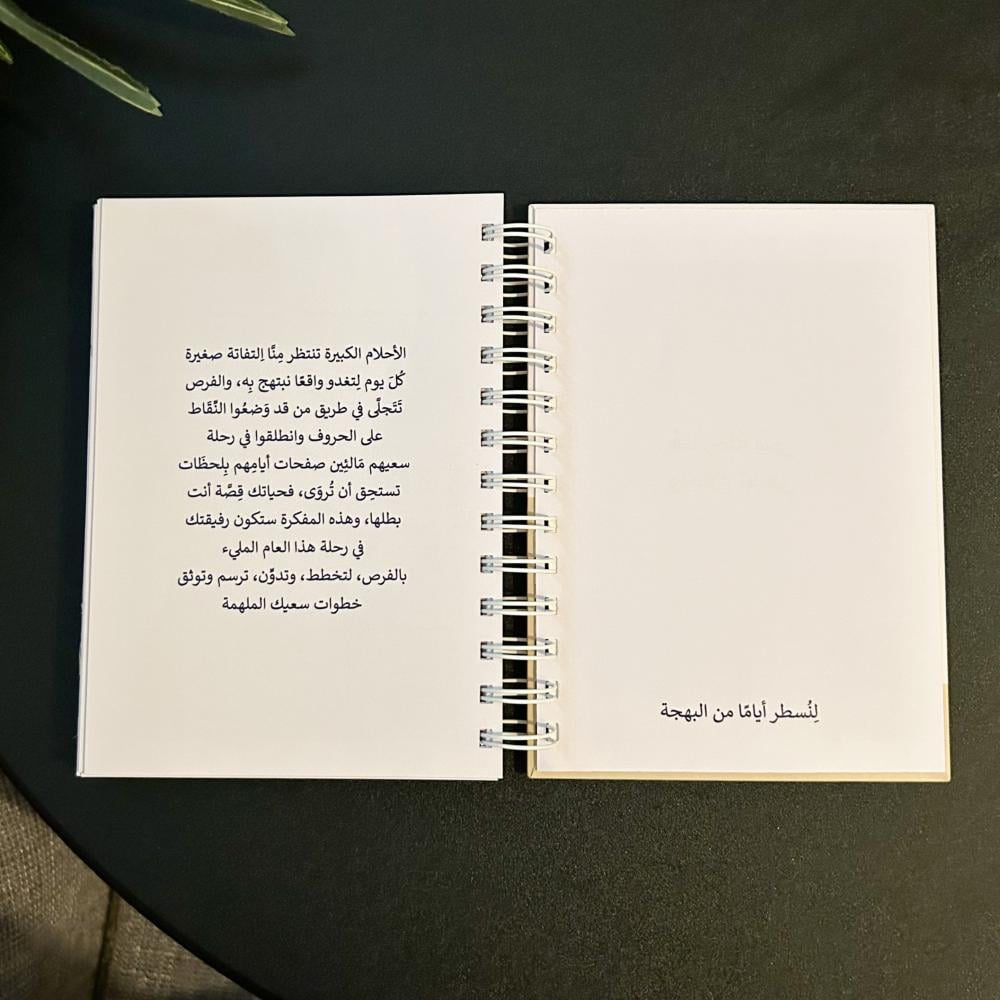 لِنُسطر أيامًا من البهجة
الأحلام الكبيرة تنتظر مِنَّا اِلتفاتة صغيرة
كُلَ يوم لِتغدو واقعًا نبتهج بِه، والفرص
تَتَجلَّى في طريق من قد وَضعُوا النِّقَاط
على الحروف وانطلقوا في رحلة
سعيهم مَالئِين صفحات أيامِهم بِلحظَات
تستحِق أن تُروَى، فحياتك قِصَّة أنت
بطلها، وهذه المفكرة ستكون رفيقتك
في رحلة هذا العام المليء
بالفرص، لتخطط، وتدوِّن، ترسم وتوثق
خطوات سعيك الملهمة